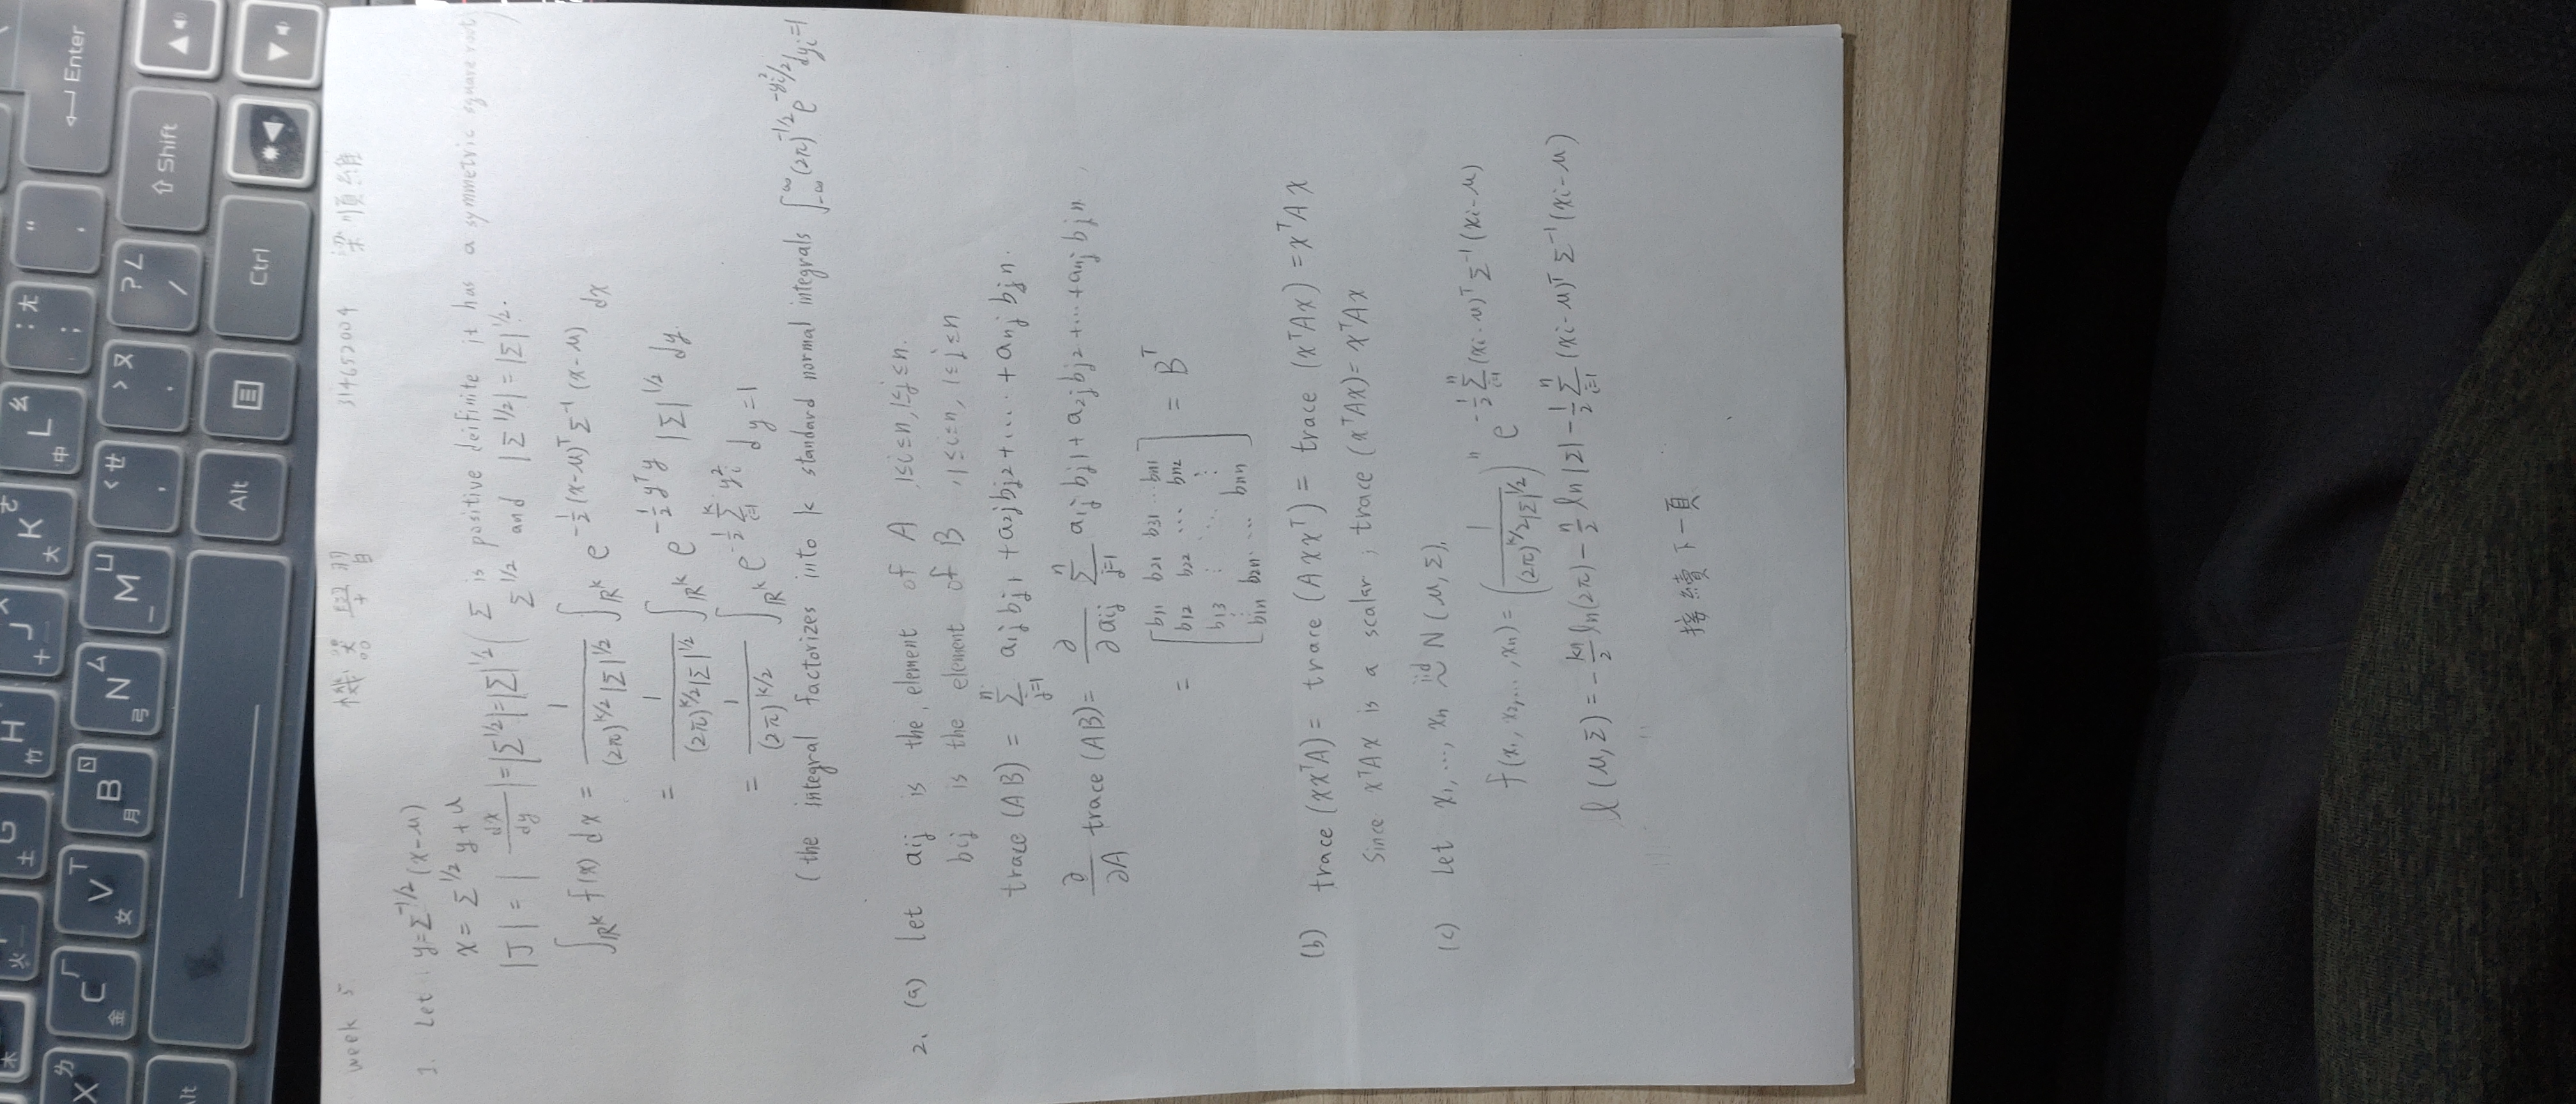 木 火 G 土 H 竹 J 十 K ㄜ 大 L ㄠ 中 : ㄤ ; " , Enter
X ㄌ C ㄏ 金 V ㄒ 女 B ㄖ 月 N ㄙ 弓 M ㄩ — < ㄝ , > ㄡ . ? ㄥ / Shift
Alt Alt Ctrl
week 5 機器學習 314652004 梁順維
1. Let y=Σ^{-1/2}(x-μ)
x= Σ^{1/2} y+μ
|J| = |dx/dy|=|Σ^{1/2}|=|Σ|^{1/2} ( Σ is positive deifinite it has a symmetric square root
Σ^{1/2} and |Σ^{1/2}|=|Σ|^{1/2}. )
∫_{ℝ^k} f(x) dx = 1/((2π)^{k/2}|Σ|^{1/2}) ∫_{ℝ^k} e^{-1/2 (x-μ)^T Σ^{-1} (x-μ)} dx
= 1/((2π)^{k/2}|Σ|^{1/2}) ∫_{ℝ^k} e^{-1/2 y^T y} |Σ|^{1/2} dy.
= 1/((2π)^{k/2}) ∫_{ℝ^k} e^{-1/2 Σ_{i=1}^{k} y_i^2} dy =1
(the integral factorizes into k standard normal integrals ∫_{-∞}^{∞} (2π)^{-1/2} e^{-y_i^2/2} dy_i=1
2. (a) let aij is the element of A 1≤i≤n, 1≤j≤n.
bij is the element of B , 1≤i≤n, 1≤j≤n
trace (AB) = Σ_{j=1}^{n} a_{1j} b_{j1} + a_{2j} b_{j2} + .... + a_{nj} b_{jn}.
∂/∂A trace (AB)= ∂/∂aij Σ_{j=1}^{n} a_{1j} b_{j1} + a_{2j} b_{j2} + ... + a_{nj} b_{jn}
= [ b11 b21 b31 ... bn1
b12 b22 ... bn2
b13 ⋮ ⋱ ⋮
⋮ b1n b2n ... bnn ] = B^T
(b) trace (xx^TA) = trace (Axx^T) = trace (x^TAx) = x^TAx
Since x^TAx is a scalar , trace (x^TAx)= x^TAx
(c) Let x1, ..., xn iid ~ N(μ,Σ),
f(x1, x2,..., xn)= (1/((2π)^{k/2}|Σ|^{1/2}))^n e^{-1/2 Σ_{i=1}^{n} (xi-μ)^T Σ^{-1} (xi-μ)}
ℓ(μ,Σ) = -kn/2 ln(2π) - n/2 ln|Σ| - 1/2 Σ_{i=1}^{n} (xi-μ)^T Σ^{-1} (xi-μ)
接續下一頁